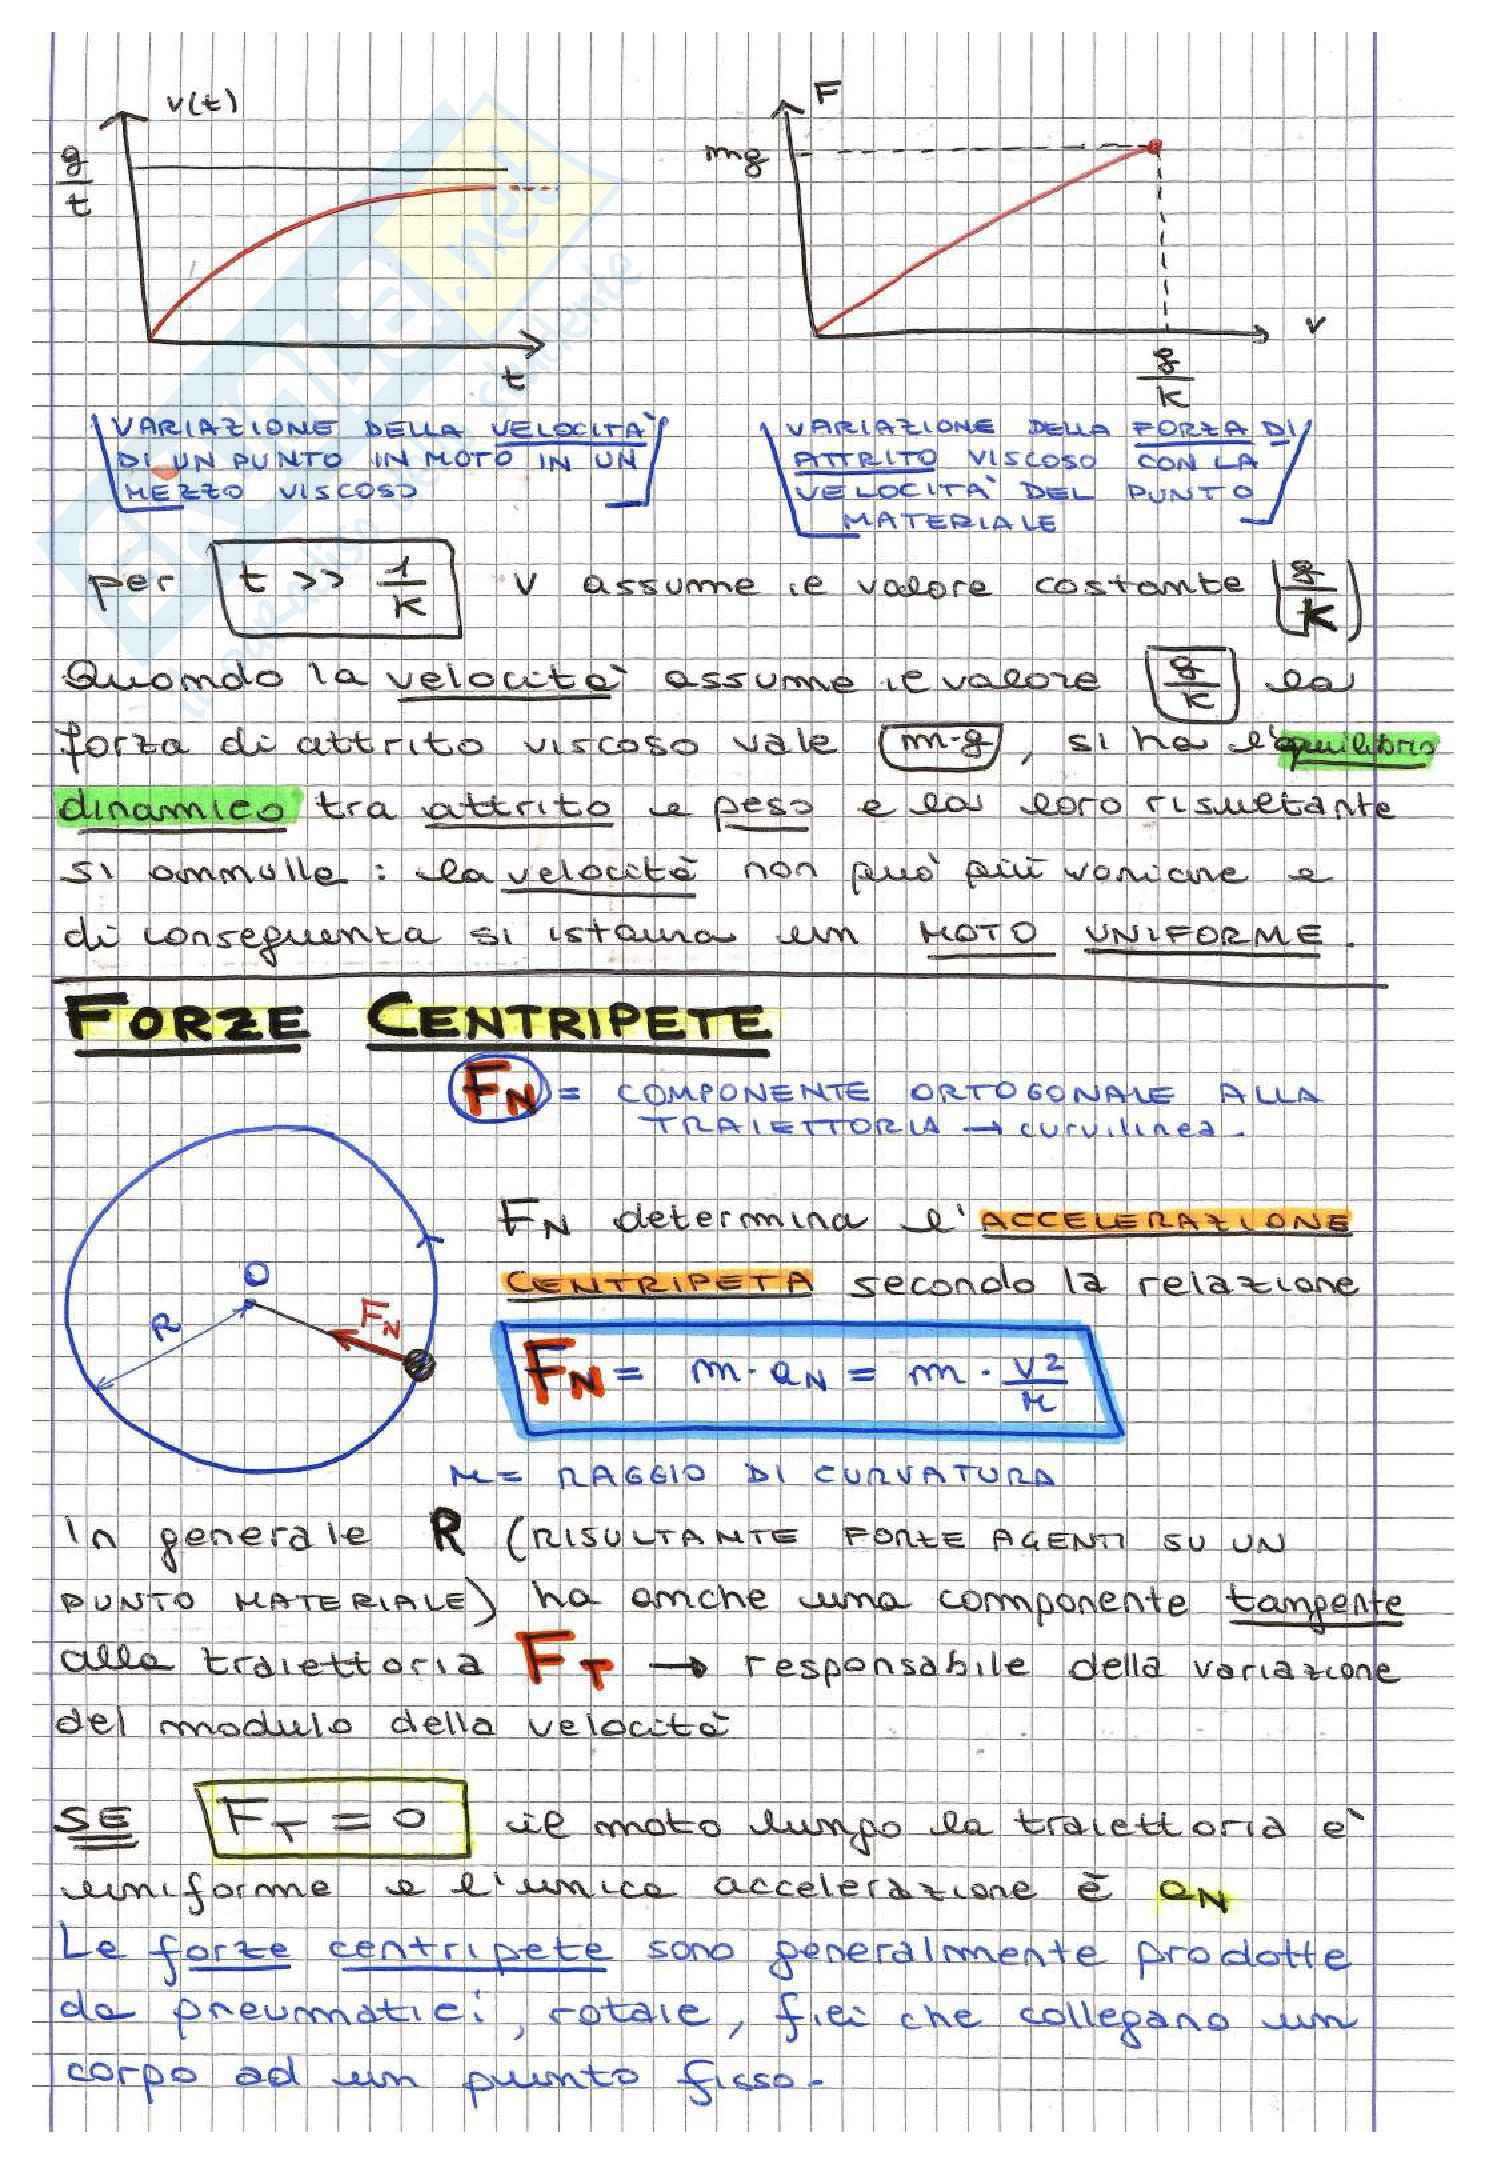 v(t)
g
t
t
F
mg
v
g
K
VARIAZIONE DELLA VELOCITÀ
DI UN PUNTO IN MOTO IN UN
MEZZO VISCOSO
VARIAZIONE DELLA FORZA DI
ATTRITO VISCOSO CON LA
VELOCITÀ DEL PUNTO
MATERIALE
per t >> 1/K v assume il valore costante (g/K)
Quando la velocità assume il valore g/K la
forza di attrito viscoso vale m·g, si ha l'equilibrio
dinamico tra attrito e peso e la loro risultante
si annulla: la velocità non può più variare e
di conseguenza si istaura un MOTO UNIFORME.
FORZE CENTRIPETE
FN = COMPONENTE ORTOGONALE ALLA
TRAIETTORIA → curvilinea.
O
R
FN
FN determina l'ACCELERAZIONE
CENTRIPETA secondo la relazione
FN = m·aN = m·v²/r
r = RAGGIO DI CURVATURA
In generale R (RISULTANTE FORZE AGENTI SU UN
PUNTO MATERIALE) ha anche una componente tangente
alla traiettoria FT → responsabile della variazione
del modulo della velocità
SE FT = 0 il moto lungo la traiettoria e'
uniforme e l'unica accelerazione è aN
Le forze centripete sono generalmente prodotte
da pneumatici, rotaie, fili che collegano un
corpo ad un punto fisso.